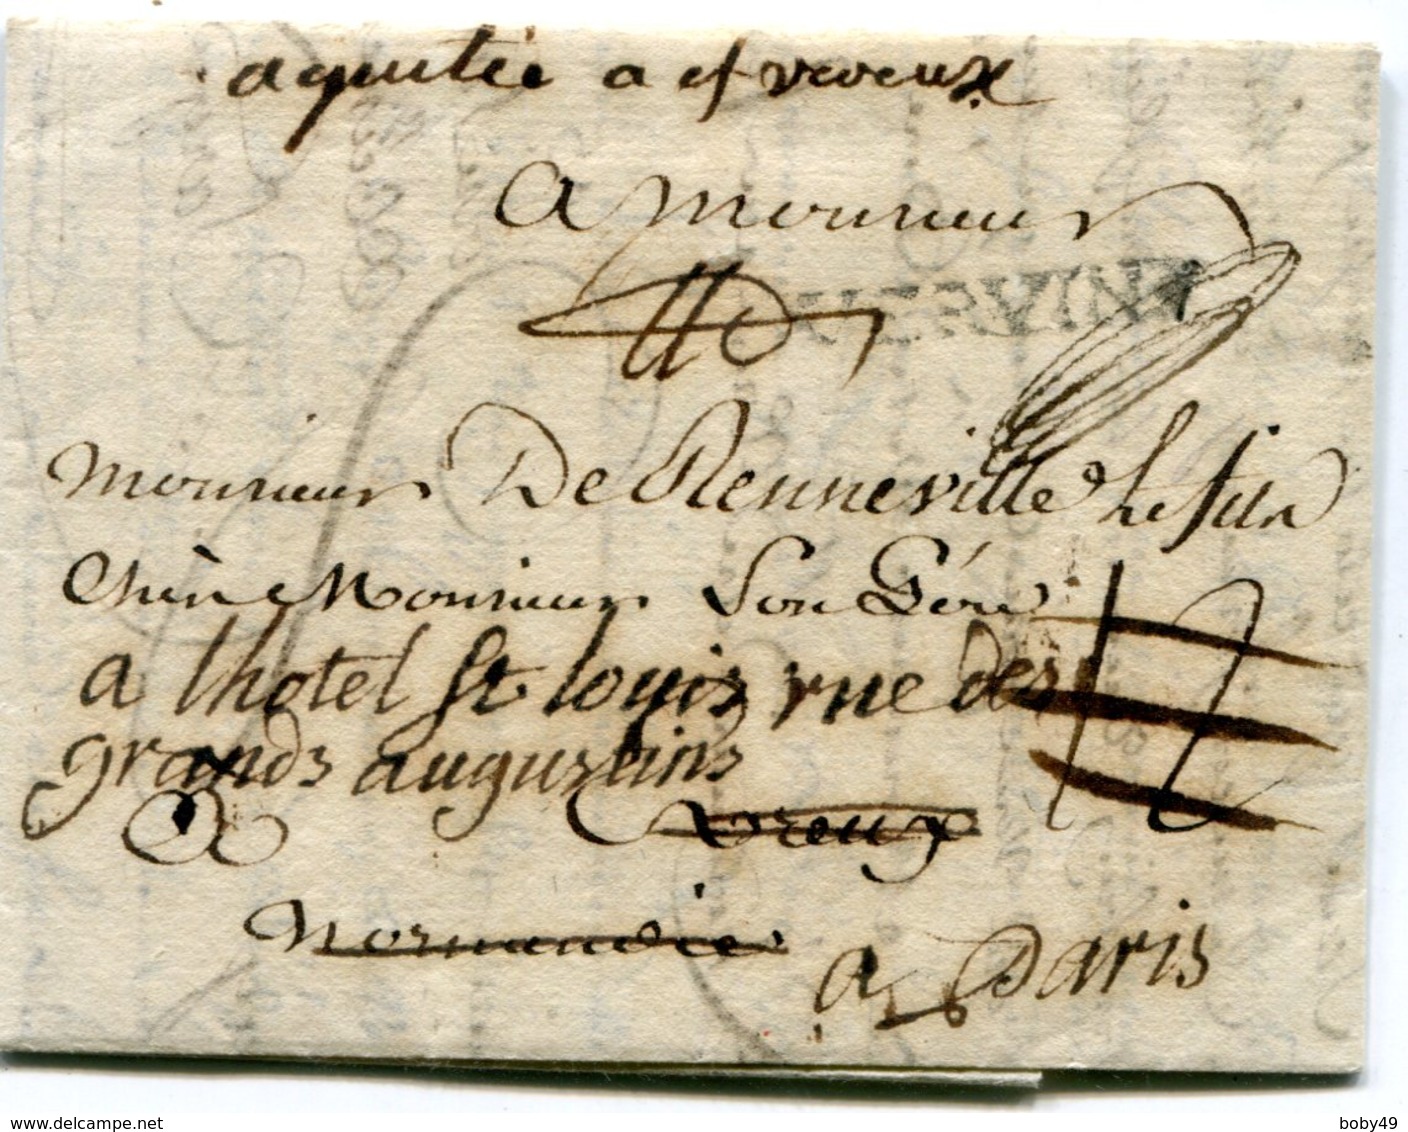 aquitée a efvreux
A Monsieur
VERVINS
Monsieur De Renneville Le fils
Chèz Monsieur Son Pére
a lhotel St louis rue des
grands augustins
12
Evreux
Normandie
a Paris
boby49